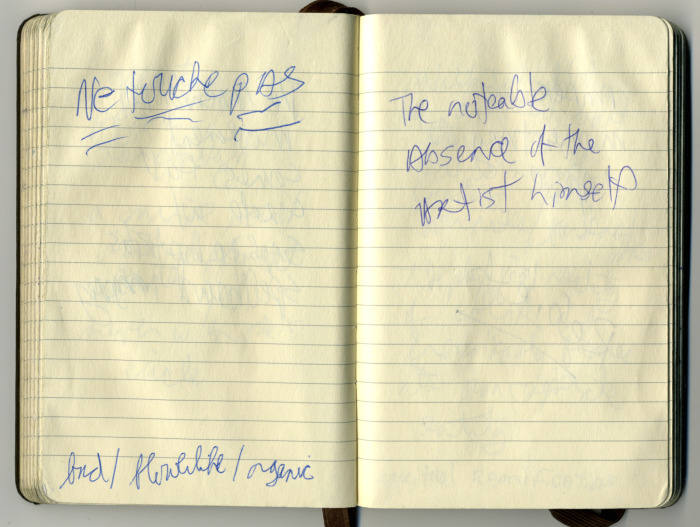 Ne touche pas
bud/flowerlike/organic
The noteable
Absence of the
Artist himself